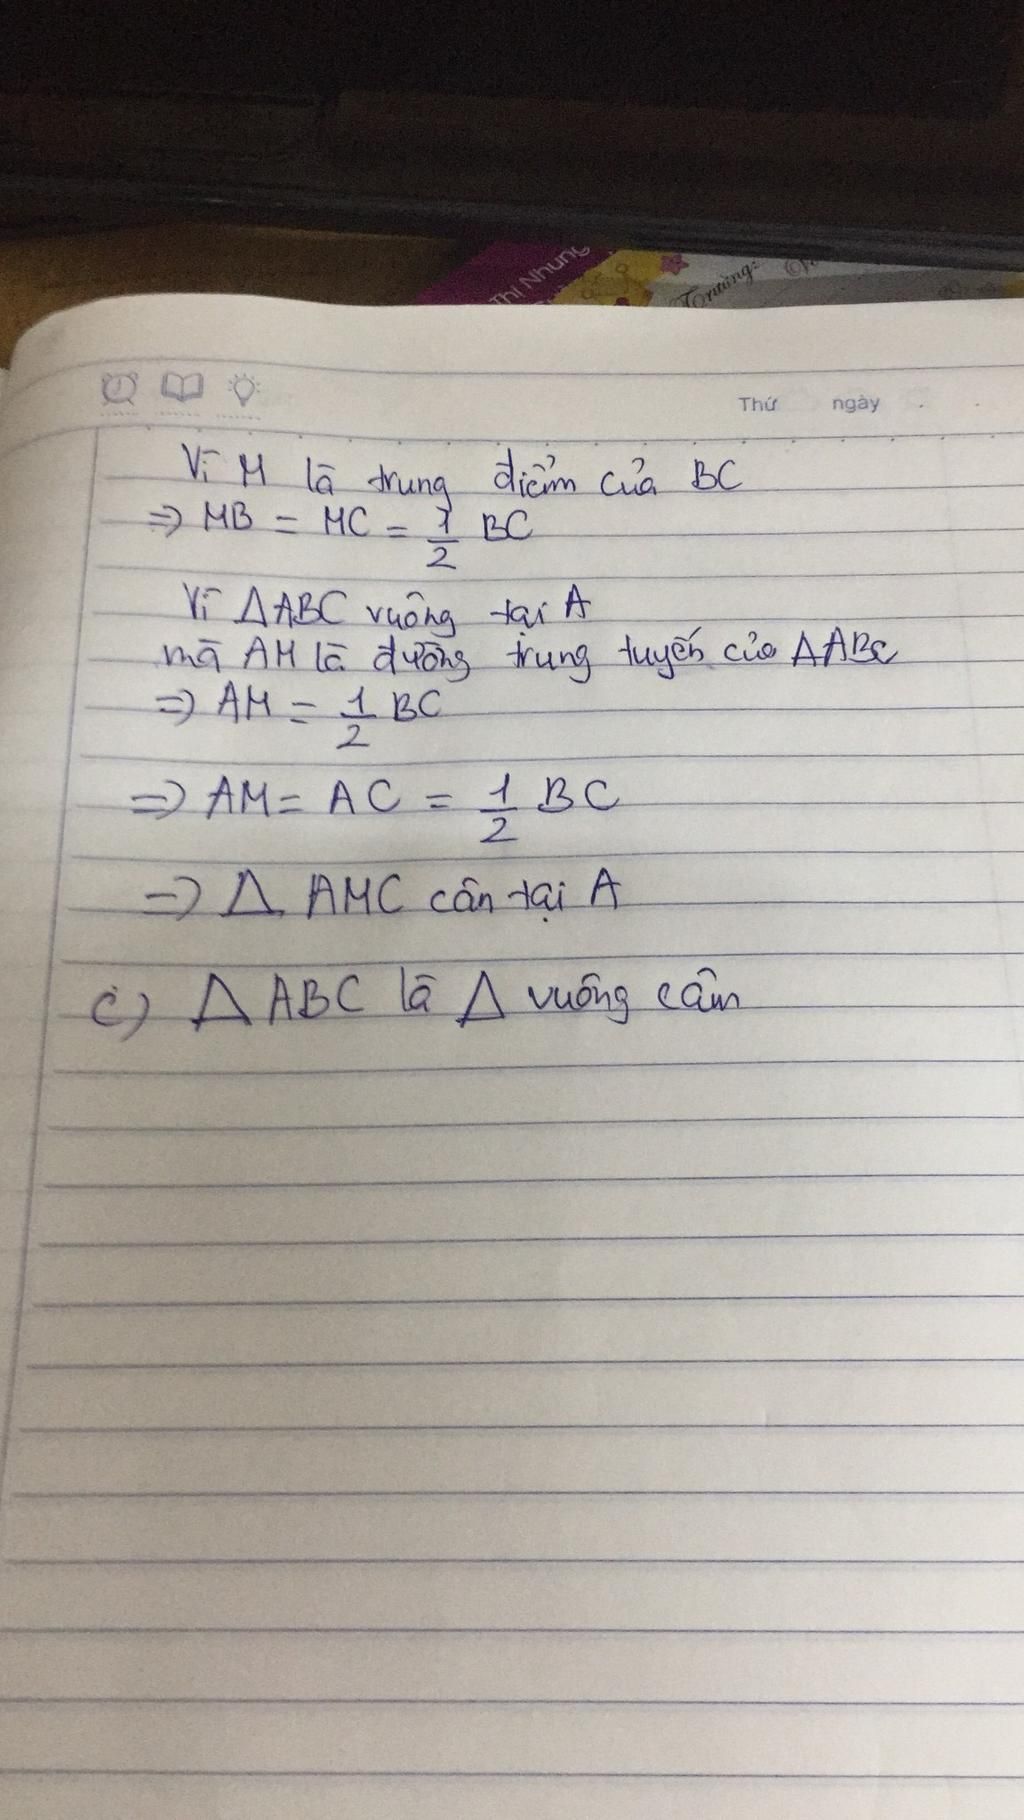 Thị Nhung
Trường:
Thứ ngày
Vì M là trung điểm của BC
=> MB = MC = 1/2 BC
Vì ΔABC vuông tại A
mà AM là đường trung tuyến của ΔABC
=> AM = 1/2 BC
=> AM = AC = 1/2 BC
=> Δ AMC cân tại A
c) Δ ABC là Δ vuông cân